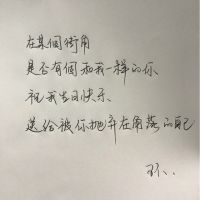 在某個街角
是否有個和我一样的你
祝我生日快乐
送给被你抛弃在角落的自己
环..